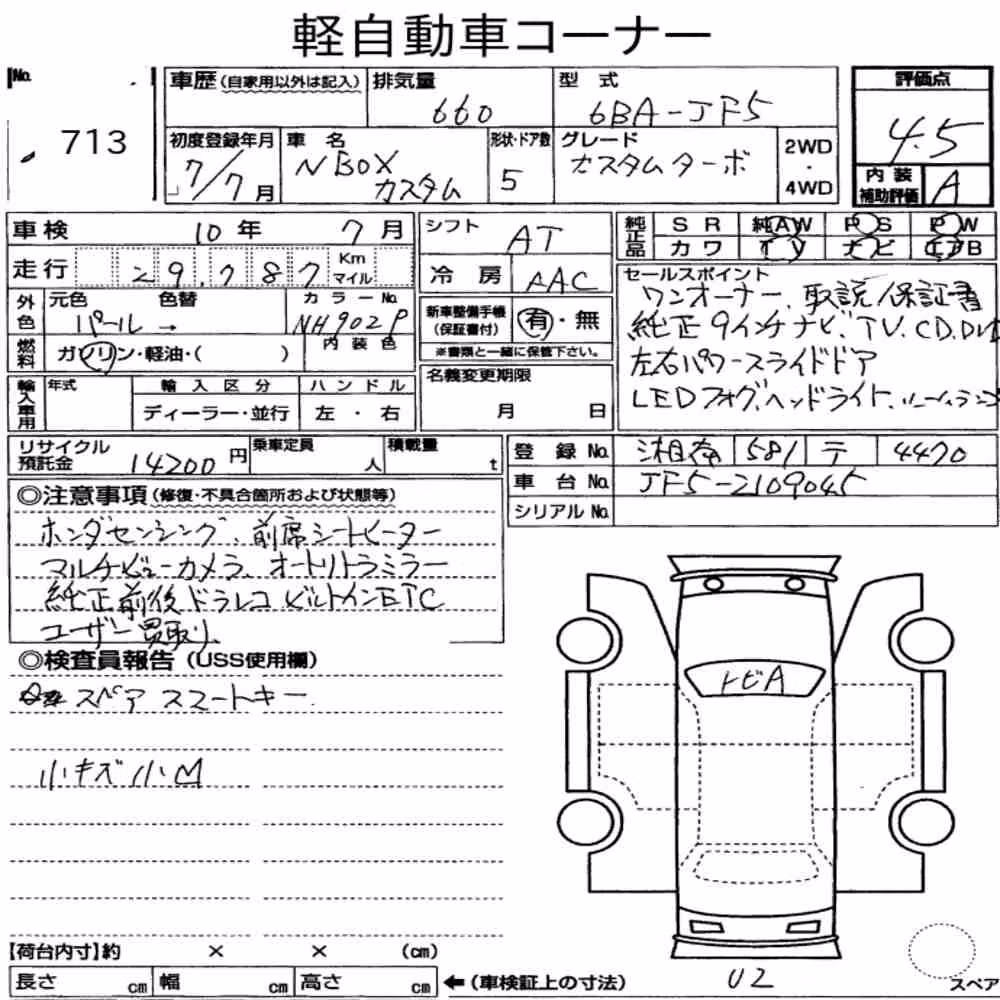 軽自動車コーナー
No. 713
車歴(自家用以外は記入) 排気量 660 型式 6BA-JF5 評価点 4.5
初度登録年月 7/7月 車名 N BOX カスタム 形状・ドア数 5 グレード カスタムターボ 2WD・4WD 内装補助評価 A
車検 10年 7月 シフト AT 純正品 SR 純AW PS PW
走行 29,787 Km マイル 冷房 AAC カワ TV ナビ エアB
外色 元色 パール → 色替 カラーNo. NH902P 内装色
新車整備手帳(保証書付) 有・無
※書類と一緒に保管下さい。
燃料 ガソリン・軽油・( )
セールスポイント
ワンオーナー、取説/保証書
純正9インチナビ、TV.CD.DVD
左右パワースライドドア
LEDフォグ、ヘッドライト、
輸入車用 年式 輸入区分 ディーラー・並行 ハンドル 左・右
名義変更期限 月 日
リサイクル預託金 14200円 乗車定員 人 積載量 t
登録No. 湘南 581 テ 4470
車台No. JF5-2109045
シリアルNo.
◎注意事項(修復・不具合箇所および状態等)
ホンダセンシング、前席シートヒーター
マルチビューカメラ、オートリトラミラー
純正前後ドラレコ ビルトインETC
ユーザー買取り
◎検査員報告(USS使用欄)
スペア スマートキー
小キズ小凹
トビA
【荷台内寸】約 × × (cm)
長さ cm 幅 cm 高さ cm ←(車検証上の寸法)
U2
スペア